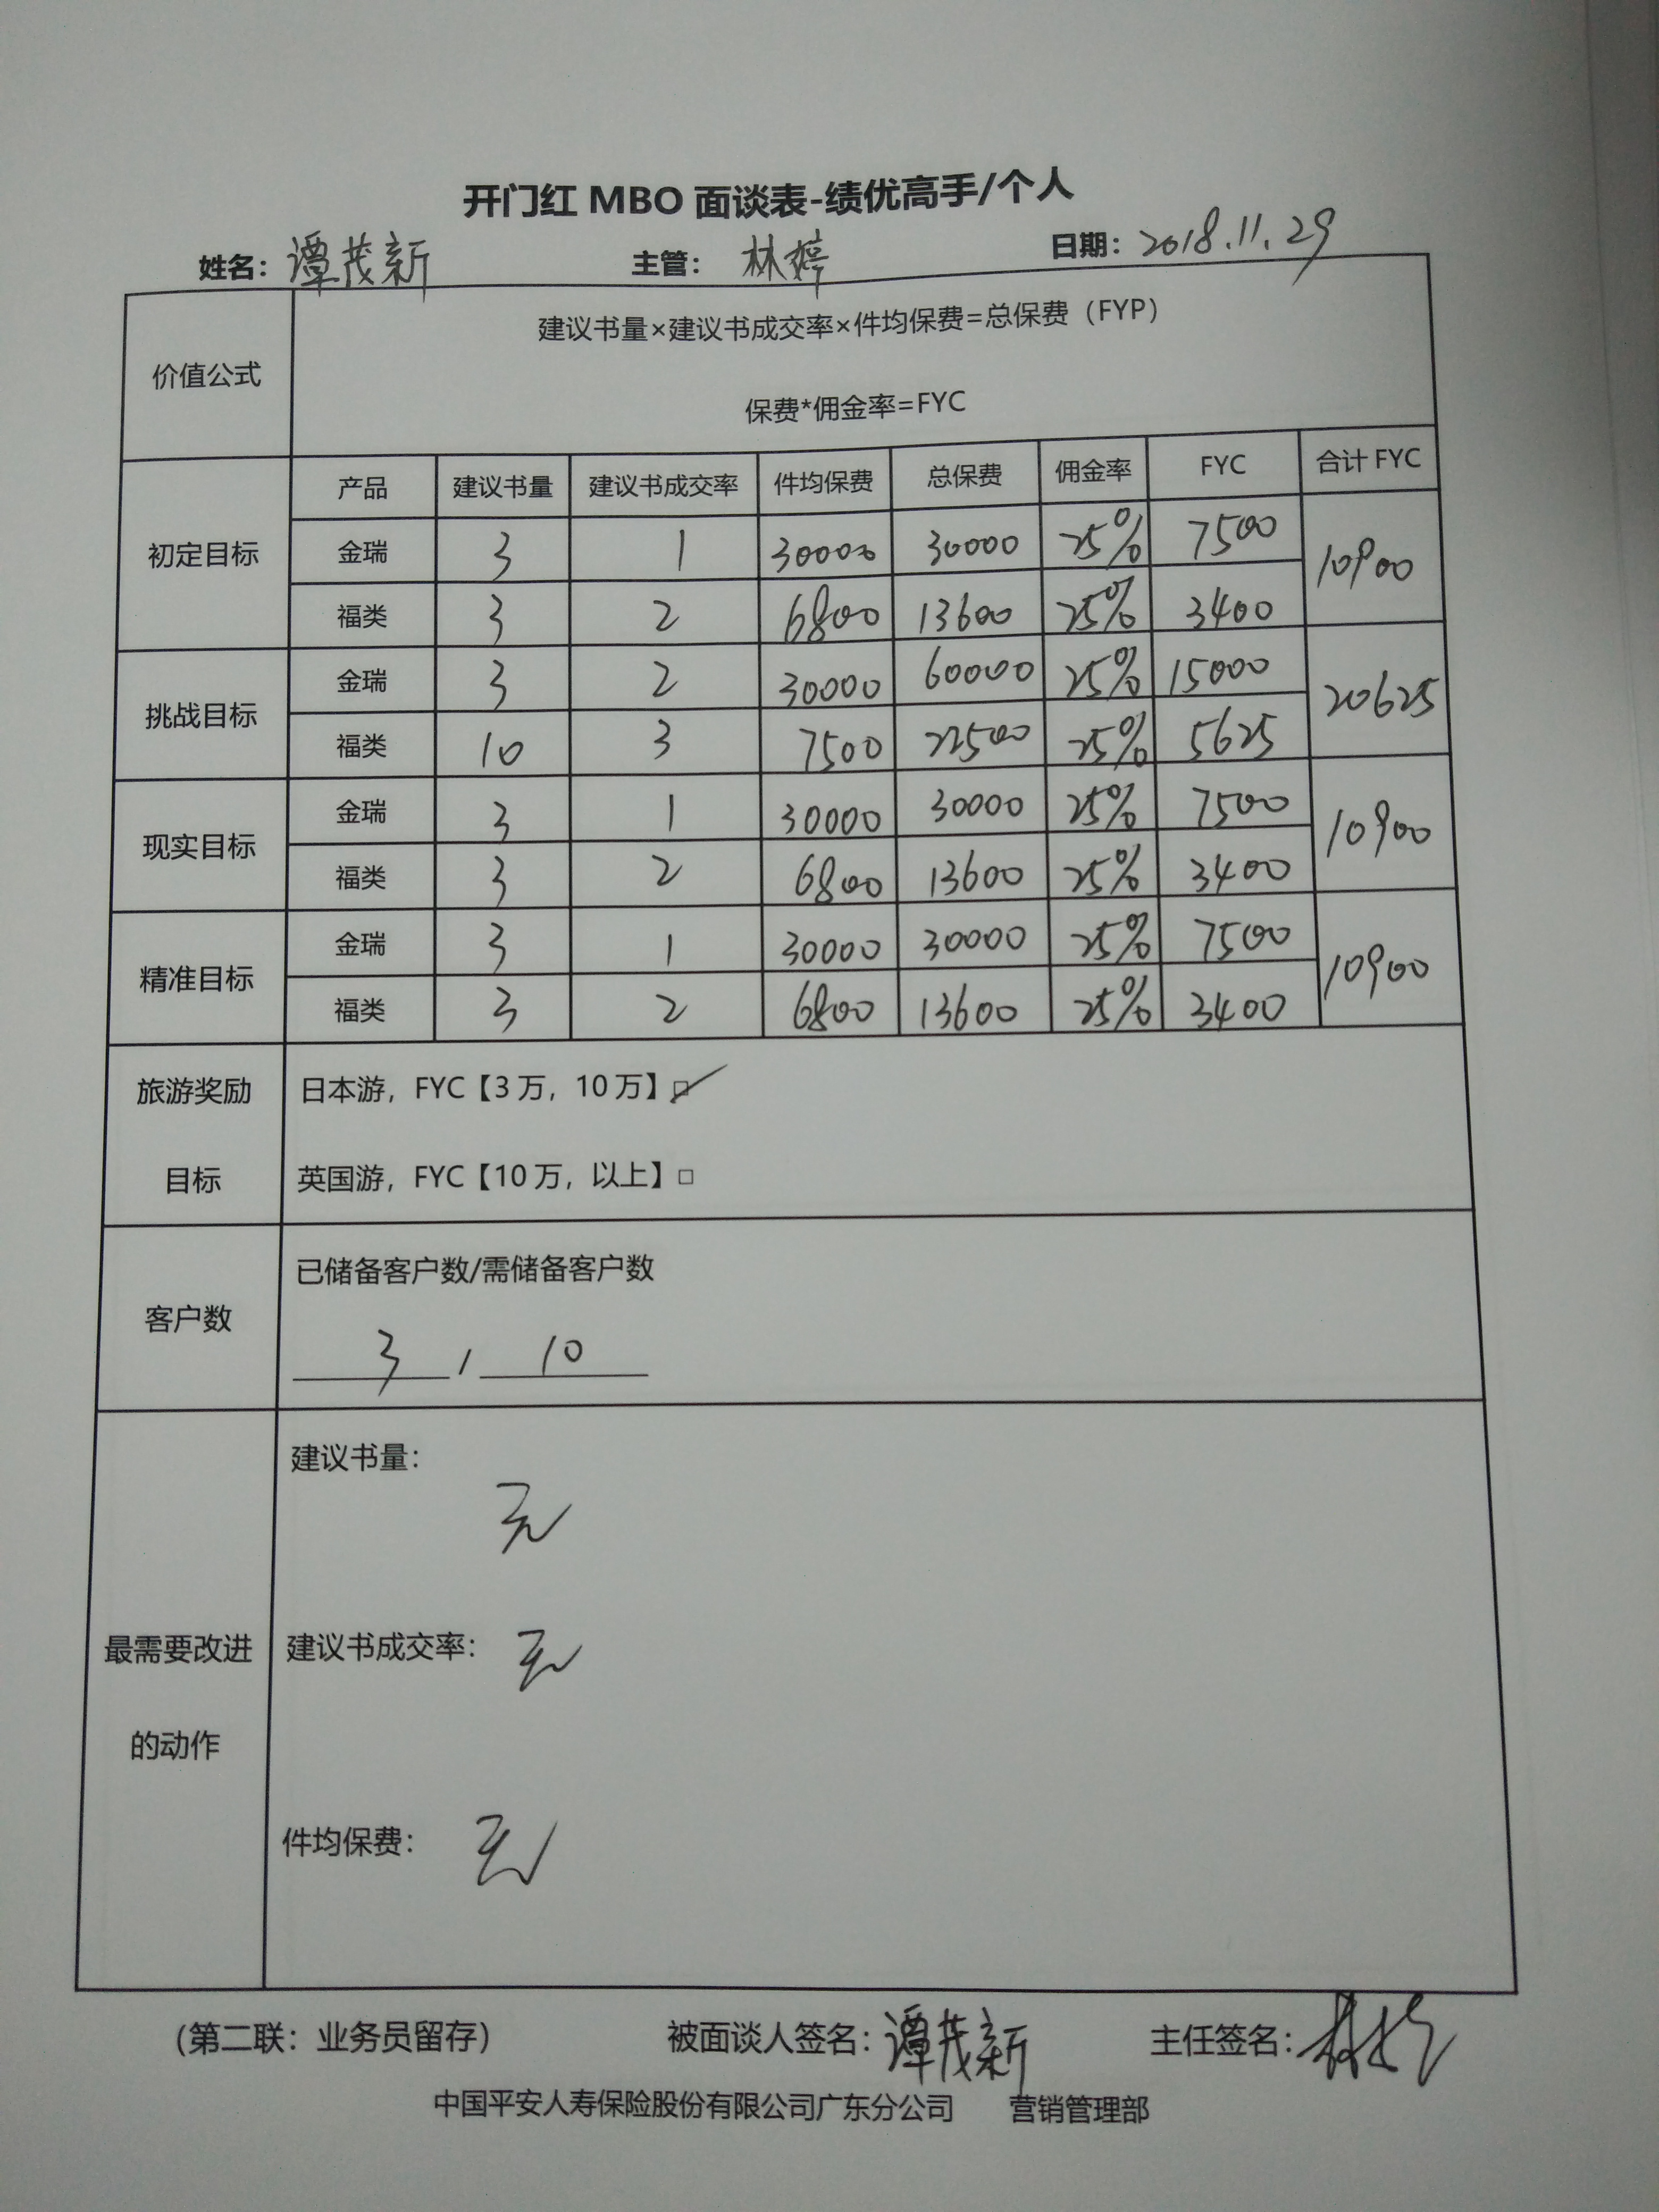 开门红 MBO 面谈表-绩优高手/个人
姓名：谭茂新 主管：林婷 日期：2018.11.29
价值公式
建议书量×建议书成交率×件均保费=总保费（FYP）
保费*佣金率=FYC
产品 建议书量 建议书成交率 件均保费 总保费 佣金率 FYC 合计 FYC
初定目标
金瑞 3 1 30000 30000 25% 7500 10900
福类 3 2 6800 13600 25% 3400
挑战目标
金瑞 3 2 30000 60000 25% 15000 20625
福类 10 3 7500 22500 25% 5625
现实目标
金瑞 3 1 30000 30000 25% 7500 10900
福类 3 2 6800 13600 25% 3400
精准目标
金瑞 3 1 30000 30000 25% 7500 10900
福类 3 2 6800 13600 25% 3400
旅游奖励
目标
日本游，FYC【3 万，10 万】☑
英国游，FYC【10 万，以上】□
客户数
已储备客户数/需储备客户数
3 / 10
最需要改进
的动作
建议书量：
无
建议书成交率：无
件均保费：无
（第二联：业务员留存） 被面谈人签名：谭茂新 主任签名：
中国平安人寿保险股份有限公司广东分公司 营销管理部